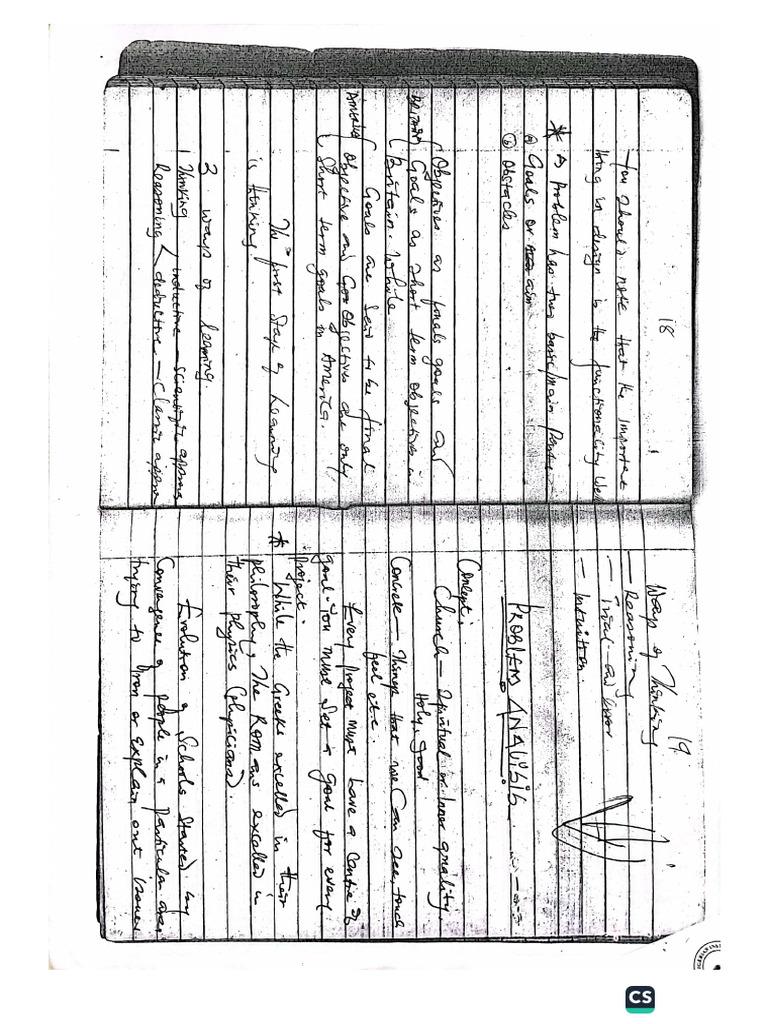 18
You should note that the important
thing in design is the functionality
* A Problem has two basic/main Parts
ⓐ Goals or aim
ⓑ Obstacles
Objectives as finals goals and
Britain Goals as short term objectives in
Britain. While
Goals are said to be final
America objective and Objectives are only
Short term goals in America.
The first Stage of Learning
is thinking
3 ways of learning.
1 Thinking
inductive – scientific
Reasoning < deductive – Classic
19
Ways of Thinking
— Reasoning
— Trial and Error
— Intuition
PROBLEM ANALYSIS
Concept;
Church – Spiritual or Inner quality
Holy, good
Concrete – Things that we can see, touch
feel etc.
Every project must have a Centre of
goal. You must set a goal for every
project.
* While the Greeks excelled in their
philosophy, The Romans excelled in
their physics (physicians).
Evolution of Schools started by
Convergence of people in a particular area
trying to iron or explain out issues
CS